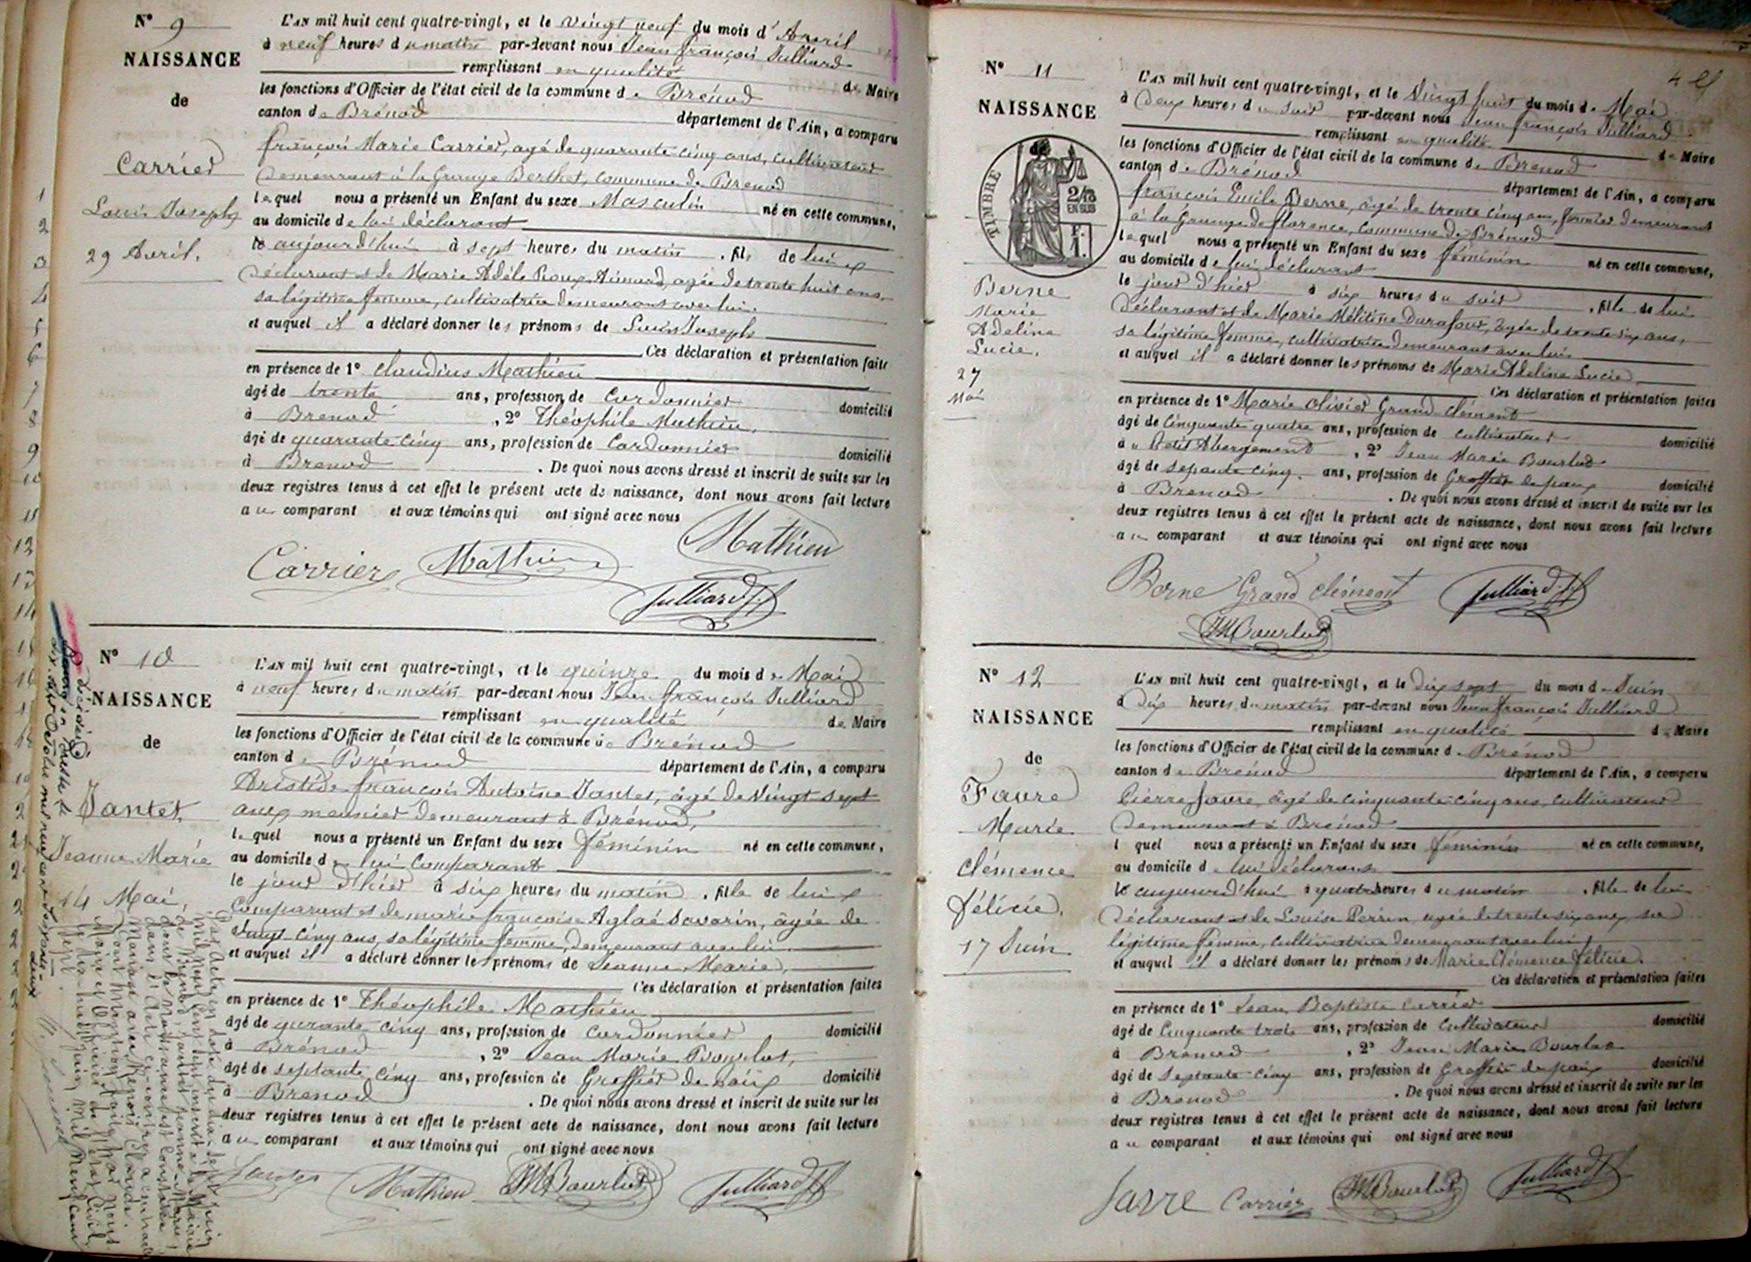 N° 9
NAISSANCE
de
Carrier
Louis Joseph
29 Avril.
L'AN mil huit cent quatre-vingt, et le vingt neuf du mois d'Avril
à neuf heures du matin par-devant nous Jean françois Julliard
remplissant en qualité de Maire
les fonctions d'Officier de l'état civil de la commune de Brénod
canton de Brénod département de l'Ain, a comparu
françois Marie Carrier, agé de quarante cinq ans, cultivateur
demeurant à la Grange Berthet, commune de Brenod
lequel nous a présenté un Enfant du sexe Masculin né en cette commune,
au domicile de lui déclarant
le aujourd'hui à sept heures du matin, fils de lui
déclarant et de Marie Adèle agée de trente huit ans,
sa légitime femme, cultivatrice demeurant avec lui.
et auquel il a déclaré donner les prénoms de Louis Joseph
Ces déclaration et présentation faite
en présence de 1° Claudius Mathieu
âgé de trente ans, profession de Cordonnier domicilié
à Brenod, 2° Théophile Mathieu,
âgé de quarante cinq ans, profession de Cordonnier domicilié
à Brenod. De quoi nous avons dressé et inscrit de suite sur les
deux registres tenus à cet effet le présent acte de naissance, dont nous avons fait lecture
au comparant et aux témoins qui ont signé avec nous
Carrier Mathieu Mathieu
Julliard
N° 10
NAISSANCE
de
Jantet,
Jeanne Marie
14 Mai,
L'AN mil huit cent quatre-vingt, et le quinze du mois de Mai
à neuf heures du matin par-devant nous Jean françois Julliard
remplissant en qualité de Maire
les fonctions d'Officier de l'état civil de la commune de Brénod
canton de Brénod département de l'Ain, a comparu
Aristide françois Antoine Jantet, âgé de Vingt sept
ans, meunier demeurant à Brénod,
lequel nous a présenté un Enfant du sexe féminin né en cette commune,
au domicile de lui comparant
le jour d'hier à six heures du matin, fille de lui
comparant et de marie françoise Aglaé Savarin, âgée de
vingt-cinq ans, sa légitime femme, demeurant avec lui
et auquel il a déclaré donner les prénoms de Jeanne Marie,
Ces déclaration et présentation faites
en présence de 1° Théophile Mathieu
âgé de quarante cinq ans, profession de Cordonnier domicilié
à Brénod, 2° Jean Marie Bourlot,
âgé de septante cinq ans, profession de Greffier de paix domicilié
à Brenod. De quoi nous avons dressé et inscrit de suite sur les
deux registres tenus à cet effet le présent acte de naissance, dont nous avons fait lecture
au comparant et aux témoins qui ont signé avec nous
Jantet Mathieu JMBourlot Julliard
N° 11
NAISSANCE
TIMBRE
2/10
EN SUS
1F.
Berne
Marie
Adeline
Lucie.
27
Mai
L'AN mil huit cent quatre-vingt, et le Vingt huit du mois de Mai
à deux heures du soir par-devant nous Jean françois Julliard
remplissant en qualité de Maire
les fonctions d'Officier de l'état civil de la commune de Brenod
canton de Brénod département de l'Ain, a comparu
françois Emile Berne, âgé de trente cinq ans, fermier demeurant
à la Grange de florence, commune de Brénod
lequel nous a présenté un Enfant du sexe féminin né en cette commune,
au domicile de lui déclarant
le jour d'hier à six heures du soir, fille de lui
déclarant et de Marie Mélitine Durafour, agée de trente six ans,
sa légitime femme, cultivatrice demeurant avec lui
et auquel il a déclaré donner les prénoms de Marie Adeline Lucie
Ces déclaration et présentation faites
en présence de 1° Marie Olivier Grand Clément
âgé de Cinquante quatre ans, profession de cultivateur domicilié
au Petit Abergement, 2° Jean Marie Bourlot
âgé de septante cinq ans, profession de Greffier de paix domicilié
à Brenod. De quoi nous avons dressé et inscrit de suite sur les
deux registres tenus à cet effet le présent acte de naissance, dont nous avons fait lecture
au comparant et aux témoins qui ont signé avec nous
Berne Grand Clément Julliard
JMBourlot
N° 12
NAISSANCE
de
Favre
Marie
Clémence
félicie.
17 Juin
L'AN mil huit cent quatre-vingt, et le dix sept du mois de Juin
à Dix heures du matin par-devant nous Jean françois Julliard
remplissant en qualité de Maire
les fonctions d'Officier de l'état civil de la commune de Brénod
canton de Brénod département de l'Ain, a comparu
Pierre Favre, âgé de cinquante-cinq ans, cultivateur
demeurant à Brénod
lequel nous a présenté un Enfant du sexe féminin né en cette commune,
au domicile de lui déclarant
le aujourd'hui à quatre heures du matin, fille de lui
déclarant et de Louise Perrin agée de trente six ans, sa
légitime femme, cultivatrice demeurant avec lui
et auquel il a déclaré donner les prénoms de Marie Clémence félicie.
Ces déclaration et présentation faites
en présence de 1° Jean Baptiste Carrier
âgé de Cinquante trois ans, profession de Cultivateur domicilié
à Brenod, 2° Jean Marie Bourlot
âgé de septante-cinq ans, profession de Greffier de paix domicilié
à Brenod. De quoi nous avons dressé et inscrit de suite sur les
deux registres tenus à cet effet le présent acte de naissance, dont nous avons fait lecture
au comparant et aux témoins qui ont signé avec nous
favre Carrier JMBourlot Julliard